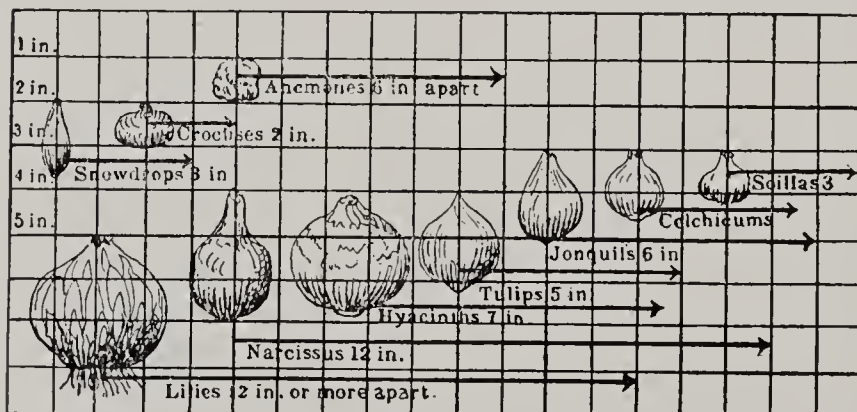 1 in.
2 in.
Anemones 6 in apart
3 in.
Crocuses 2 in.
Snowdrops 3 in
4 in.
Scillas 3
Colchicums
5 in.
Jonquils 6 in
Tulips 5 in
Hyacinths 7 in.
Narcissus 12 in.
Lilies 12 in. or more apart.